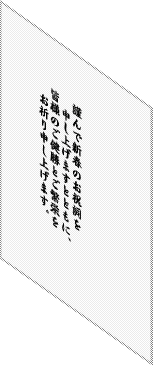 謹んで新春のお祝詞を
申し上げますとともに、
皆様のご健勝とご繁栄を
お祈り申し上げます。